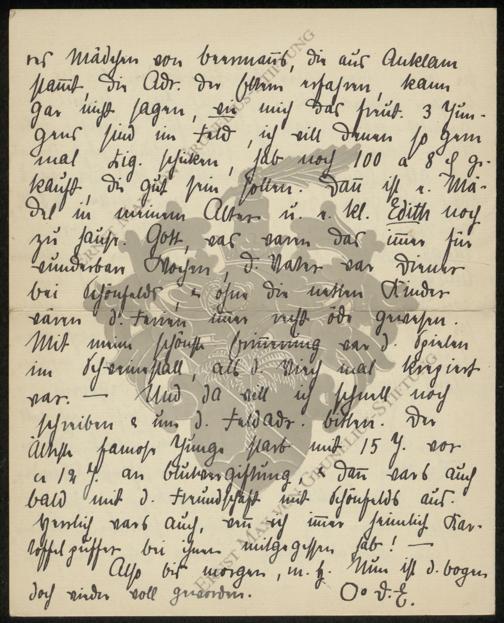 res Mädchen von Beermanns, die aus Anklam
stammt, die Adr. der Eltern erfahren, kann
gar nicht sagen, wie mich das freut. 3 Jun-
gens sind im Feld, ich will denen so gern
mal Zig. schicken, hab noch 100 a 8 ₰ ge-
kauft, die gut sein sollen. Dann ist e. Mä-
del in meinem Alter u. e. kl. Edith noch
zu Hause. Gott, was waren das immer für
wunderbare Wochen, d. Vater war Diener
bei Schönfelds & ohne die netten Kinder
wären d. Ferien immer recht öde gewesen.
Mit meine schönste Erinnerung war d. Spielen
im Schweinestall, als d. Viech mal krepiert
war. — Und da will ich schnell noch
schreiben & um d. Feldadr. bitten. Der
Älteste famose Junge starb mit 15 J. vor
ca 12 J. an Blutvergiftung, & dann wars auch
bald mit d. Freundschaft mit Schönfelds aus.
Herrlich wars auch, wenn ich immer heimlich Kar-
toffelpuffer bei ihnen mitgegessen hab! —
Also bis morgen, m. H. Nun ist d. Bogen
doch wieder voll geworden. D. E.
ERNST MAX VON GRUBELIUS-STIFTUNG